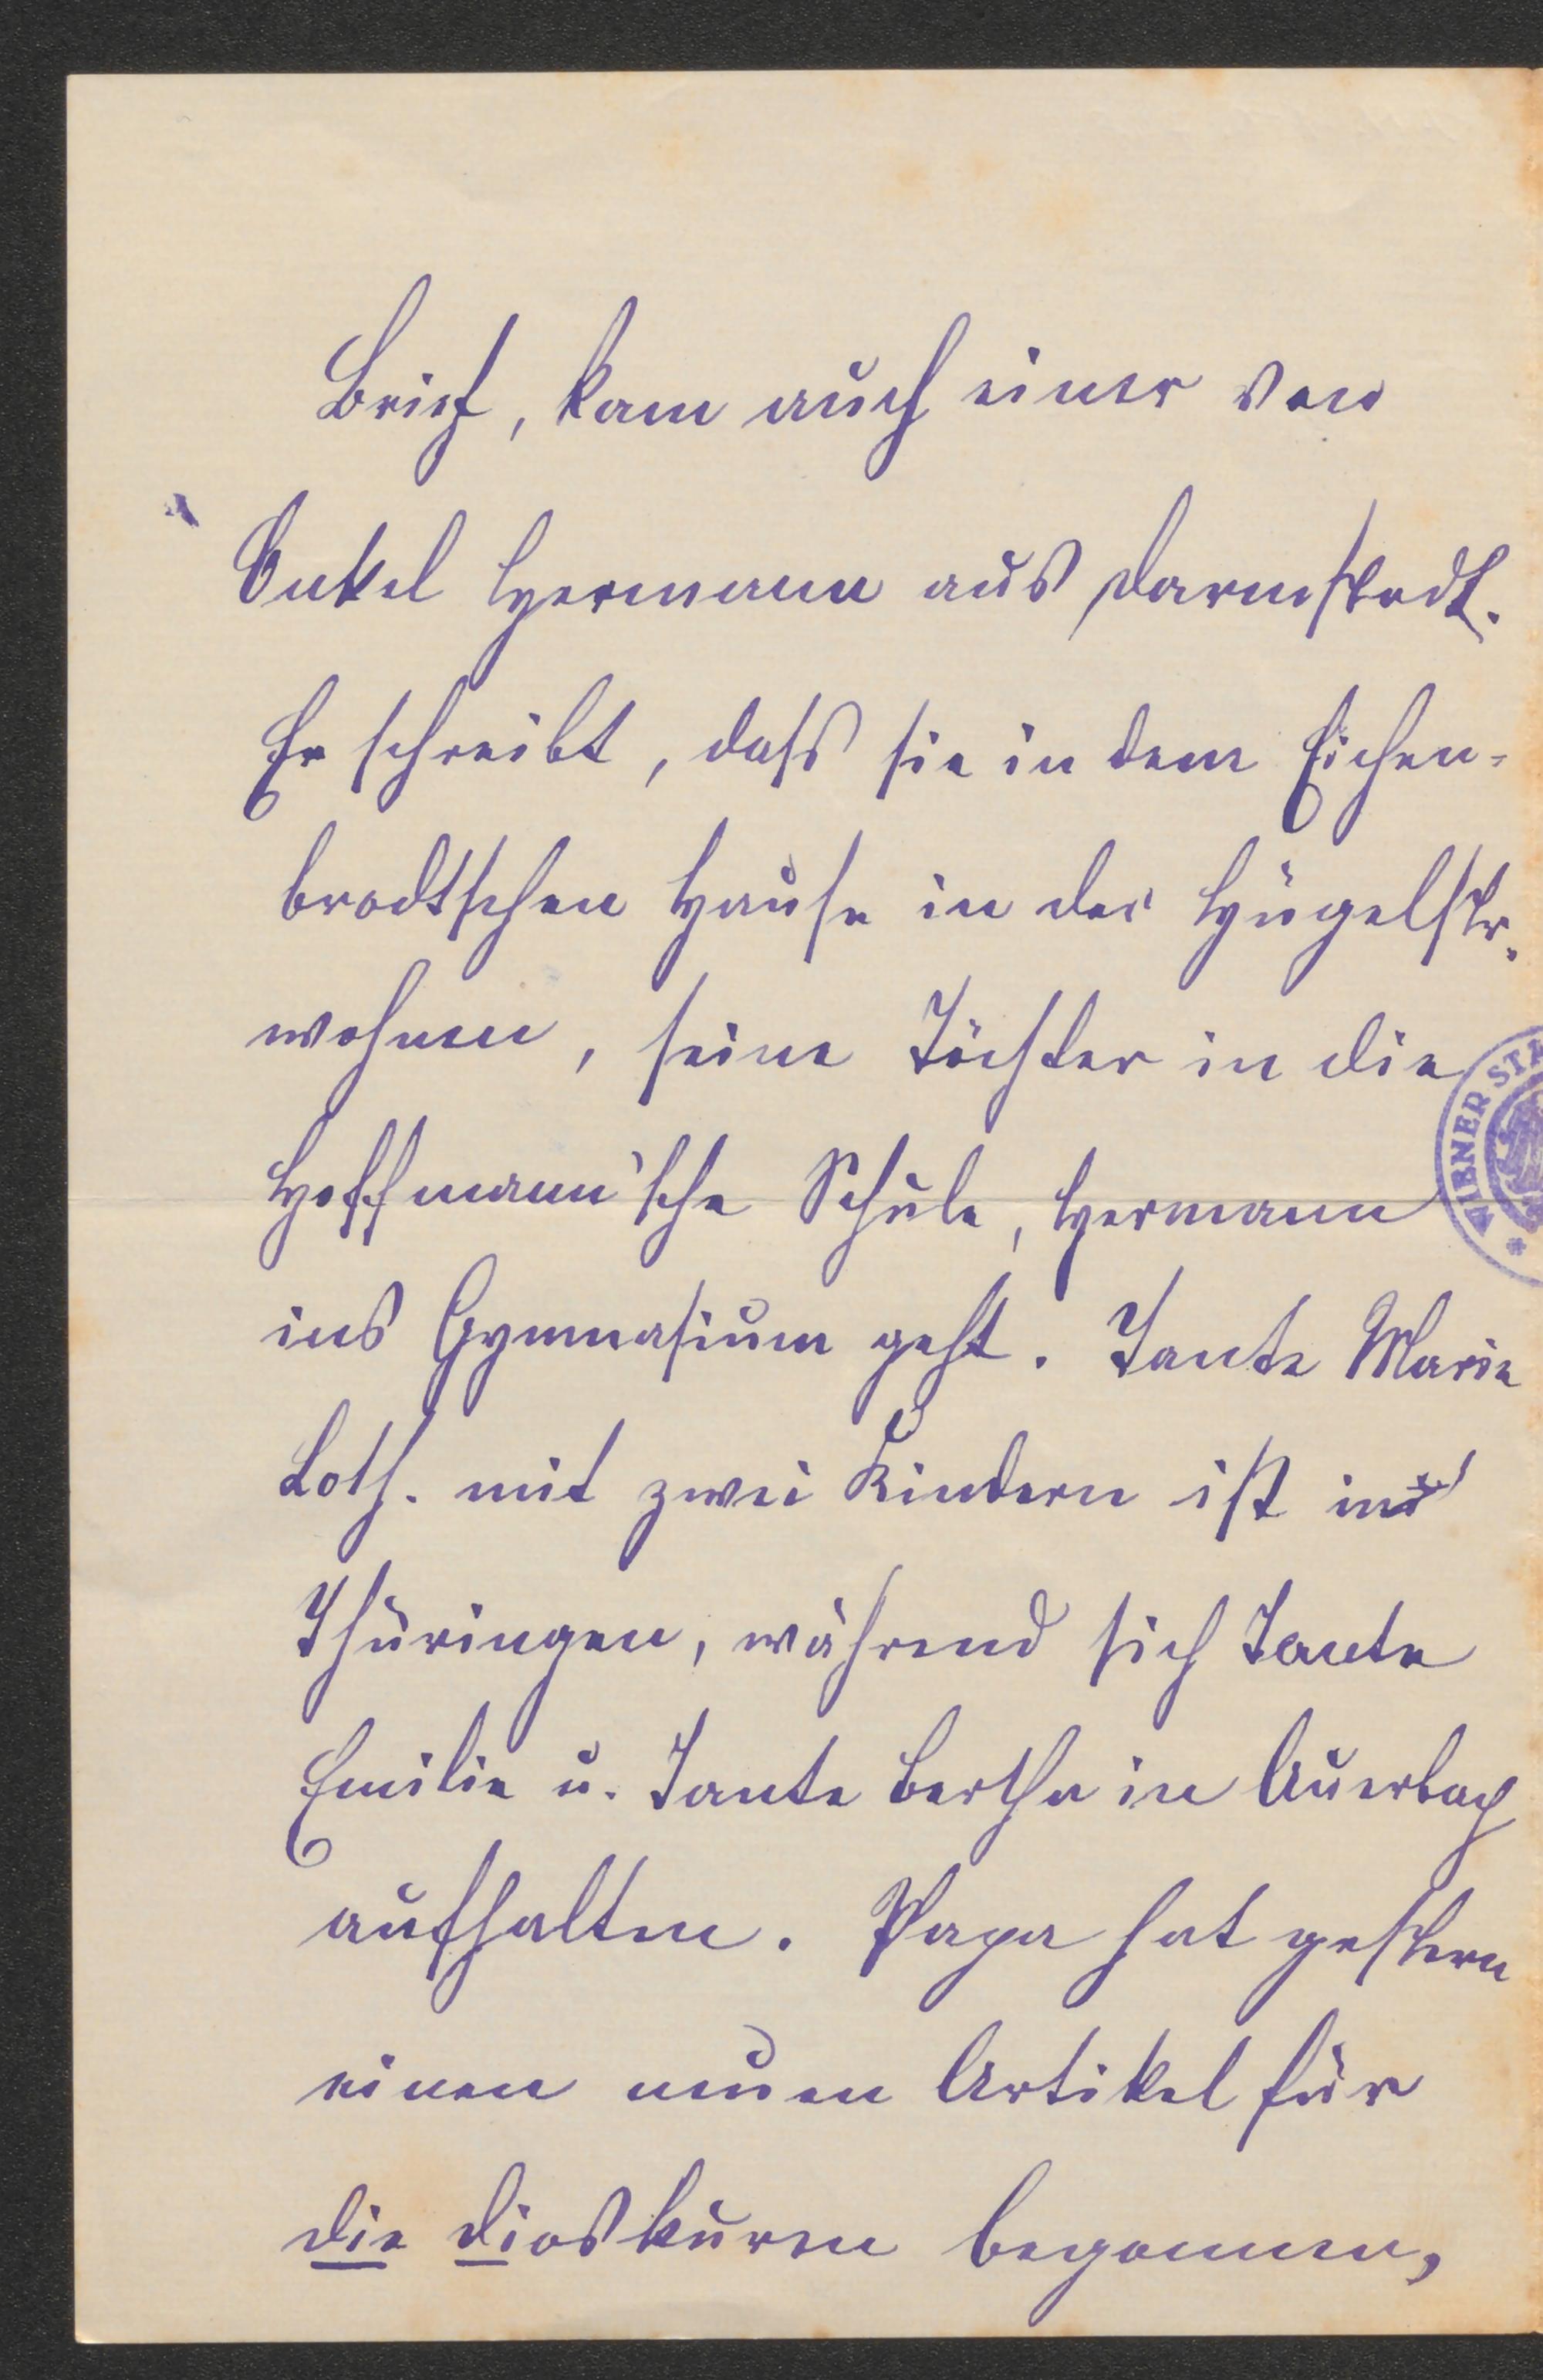 Brief, kam auch einer von
Onkel Hermann aus Darmstadt.
Er schreibt, dass sie in dem Eichen-
brodtschen Hause in der Hügelstr.
wohnen, seine Töchter in die
Hoffmann'sche Schule, Hermann
ins Gymnasium geht. Tante Marie
Loth. mit zwei Kindern ist in
Thüringen, während sich Tante
Emilie u. Tante Bertha in Auerbach
aufhalten. Papa hat gestern
einen neuen Artikel für
die Dioskuren begonnen,
WIENER STA